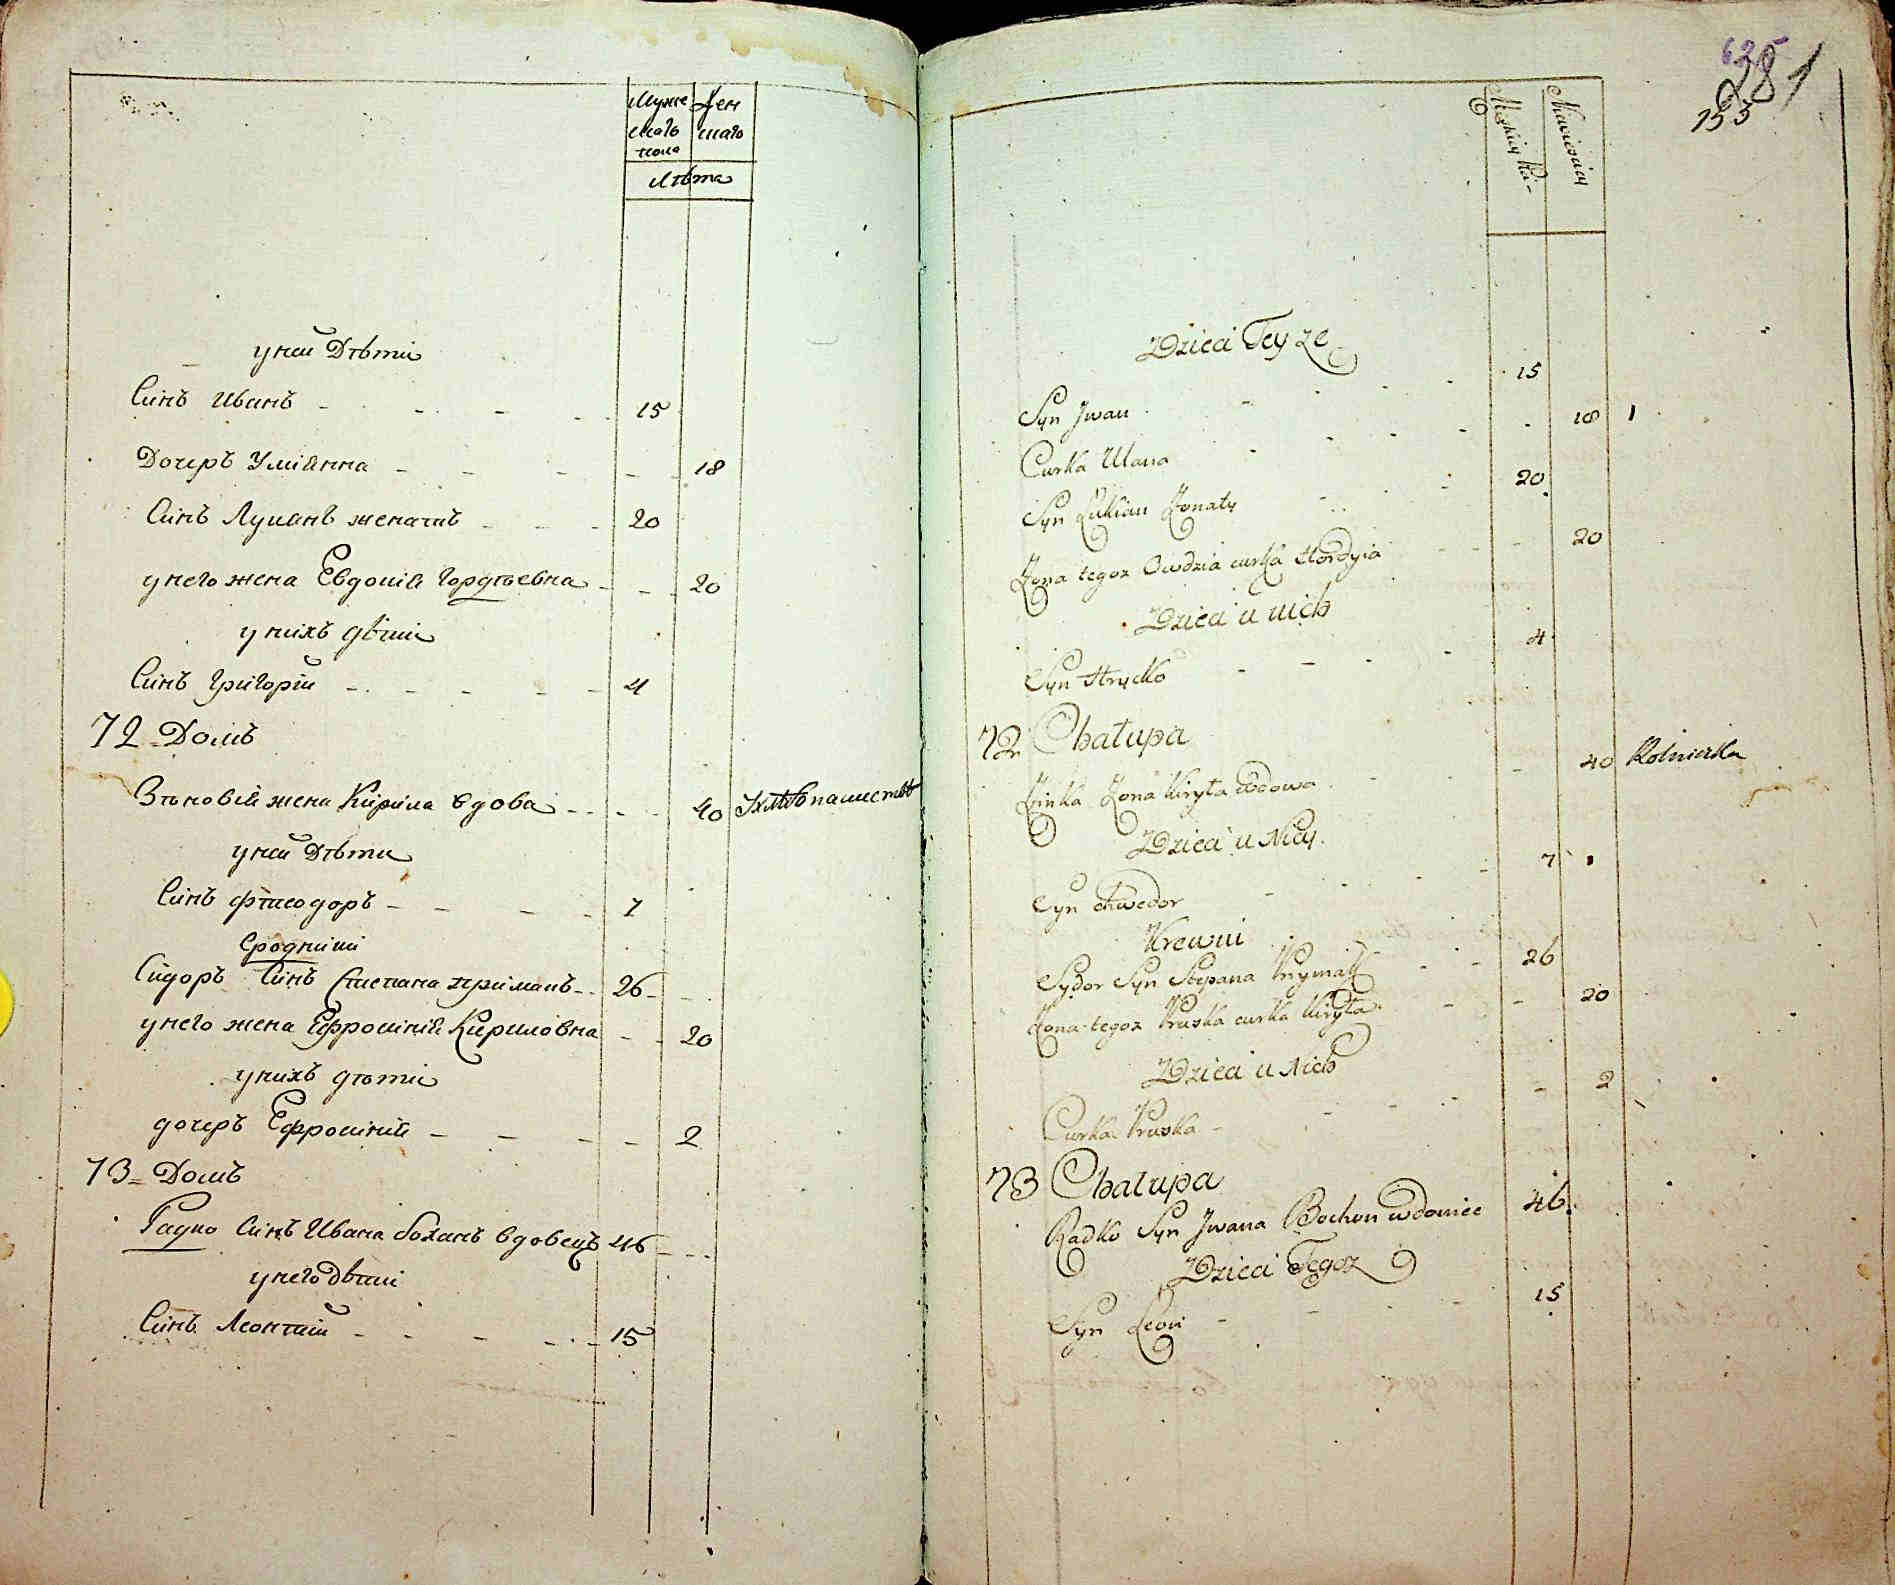 Муже Жен
скаго скаго
пола
Лѣта
у ней Дѣти
Синъ Иванъ 15
Дочеръ Улиянна 18
Синъ Лукянъ женатъ 20
у него жена Евдокия Гордѣевна 20
у нихъ дѣти
Синъ Григорій 4
72 Домъ
Зѣновія жена Кирила вдова 40
у ней Дѣти
Синъ Фтеодоръ 7
Сродники
Сидоръ Синъ Степана примакъ 26
у него жена Ефросиния Кириловна 20
у нихъ дѣти
дочеръ Ефросиния 2
73 Домъ
Радко Синъ Ивана боханъ вдовецъ 46
у него Дѣти
Синъ Леонтий 15
635
281
153
Dzieci Teyze
Syn Jwan 15
Curka Ulana 18 1
Syn Łukian Żonaty 20
Żona tegoz Owdzia curka Hordyia 20
Dzieci u nich
Syn Hrycko 4
72 Chałupa
Zinka Żona Kiryła wdowa 40 Rolniczka
Dzieci u Niey
Syn Chwedor 7
Krewni
Sydor Syn Stepana Prymak 26
Żona tegoz Pruska curka Kiryła 20
Dzieci u Nich
Curka Pruska 2
73 Chałupa
Radko Syn Jwana Bochon wdowiec 46
Dzieci Tegoz
Syn Leon 15